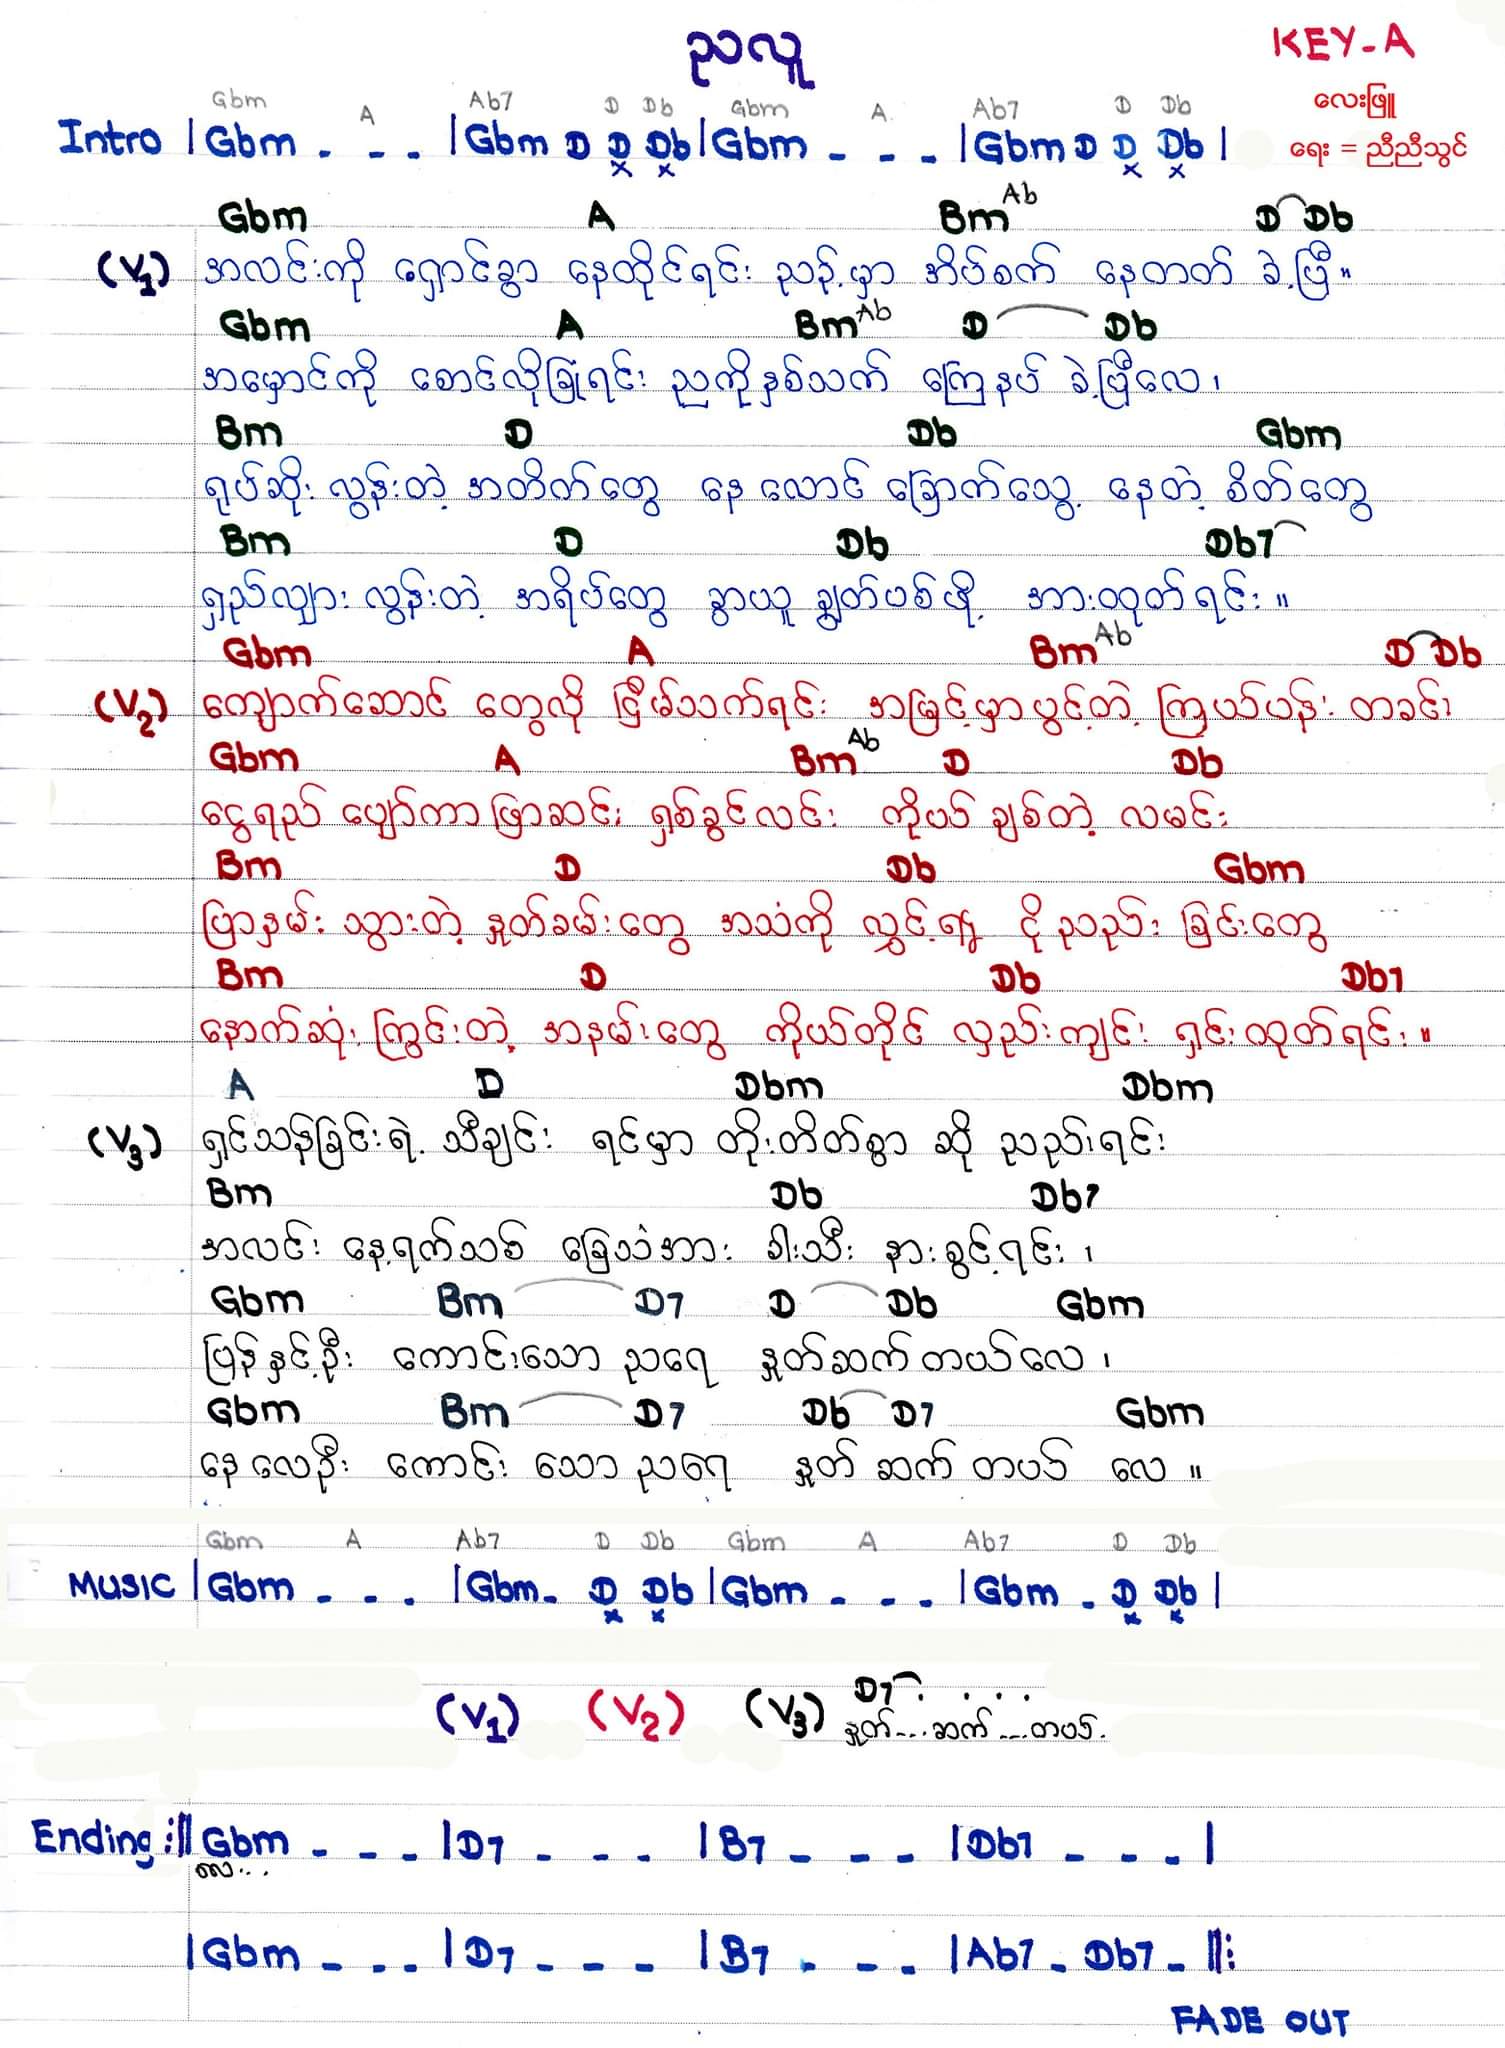 ညလူ
KEY-A
လေးဖြူ
ရေး = ညီညီသွင်
Gbm A Ab7 D Db Gbm A Ab7 D Db
Intro |Gbm - - - |Gbm D D Db|Gbm - - - |Gbm D D Db|
x x x x
Gbm A Bm Ab D Db
(V1) အလင်းကို ရှောင်ခွာ နေထိုင်ရင်း ညဉ့်မှာ အိပ်စက် နေတတ် ခဲ့ပြီ။
Gbm A Bm Ab D Db
အမှောင်ကို စောင်လိုခြုံရင်း ညကိုနှစ်သက် ကြေနပ် ခဲ့ပြီလေ၊
Bm D Db Gbm
ရုပ်ဆိုး လွန်းတဲ့ အတိတ်တွေ နေ လောင် ခြောက်သွေ့ နေတဲ့ စိတ်တွေ
Bm D Db Db7
ရှည်လျှား လွန်းတဲ့ အရိပ်တွေ ခွာယူ ချွတ်ပစ်ဖို့ အားထုတ်ရင်း ။
Gbm A Bm Ab D Db
(V2) ကျောက်ဆောင် တွေလို ငြိမ်သက်ရင်း အမြင့်မှာပွင့်တဲ့ ကြယ်ပန်း တခင်း
Gbm A Bm Ab D Db
ငွေရည် ပျော်ကာဖြာဆင်း ရှစ်ခွင်လင်း ကိုယ် ချစ်တဲ့ လမင်း
Bm D Db Gbm
ပြာနှမ်း သွားတဲ့ နှုတ်ခမ်းတွေ အသံကို လွှင့်၍ ငို ညည်း ခြင်းတွေ
Bm D Db Db7
နောက်ဆုံး ကြွင်းတဲ့ အနမ်းတွေ ကိုယ်တိုင် လှည်းကျင်း ရှင်းထုတ်ရင်း ။
A D Dbm Dbm
(V3) ရှင်သန်ခြင်းရဲ့ သီချင်း ရင်မှာ တိုးတိတ်စွာ ဆို ညည်းရင်း
Bm Db Db7
အလင်း နေ့ရက်သစ် ခြေသံအား ခါးသီး နားစွင့်ရင်း ၊
Gbm Bm D7 D Db Gbm
ပြန်နှင့်ဦး ကောင်းသော ညရေ နှုတ်ဆက်တယ်လေ ၊
Gbm Bm D7 Db D7 Gbm
နေလေဦး ကောင်း သော ညရေ နှုတ် ဆက် တယ် လေ ။
Gbm A Ab7 D Db Gbm A Ab7 D Db
MUSIC |Gbm - - - |Gbm - D Db|Gbm - - - |Gbm - D Db|
x x x x
D7 . . . .
(V1) (V2) (V3) နှုတ်...ဆက်...တယ်.
Ending :|| Gbm - - - |D7 - - - |B7 - - - |Db7 - - - |
လေ...
|Gbm - - - |D7 - - - |B7 - - - |Ab7 - Db7 - ||:
FADE OUT